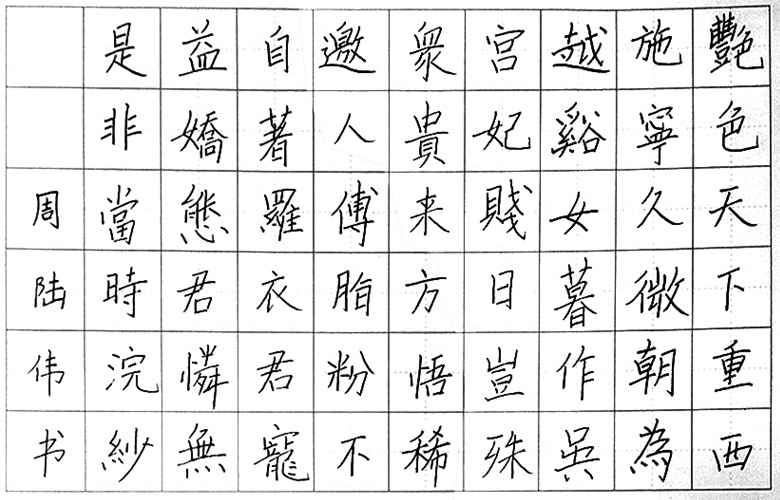 豔色天下重西
施寧久微朝為
越谿女暮作吳
宮妃賤日豈殊
眾貴来方悟稀
邀人傅脂粉不
自著羅衣君寵
益嬌態君憐無
是非當時浣紗
周陆伟书